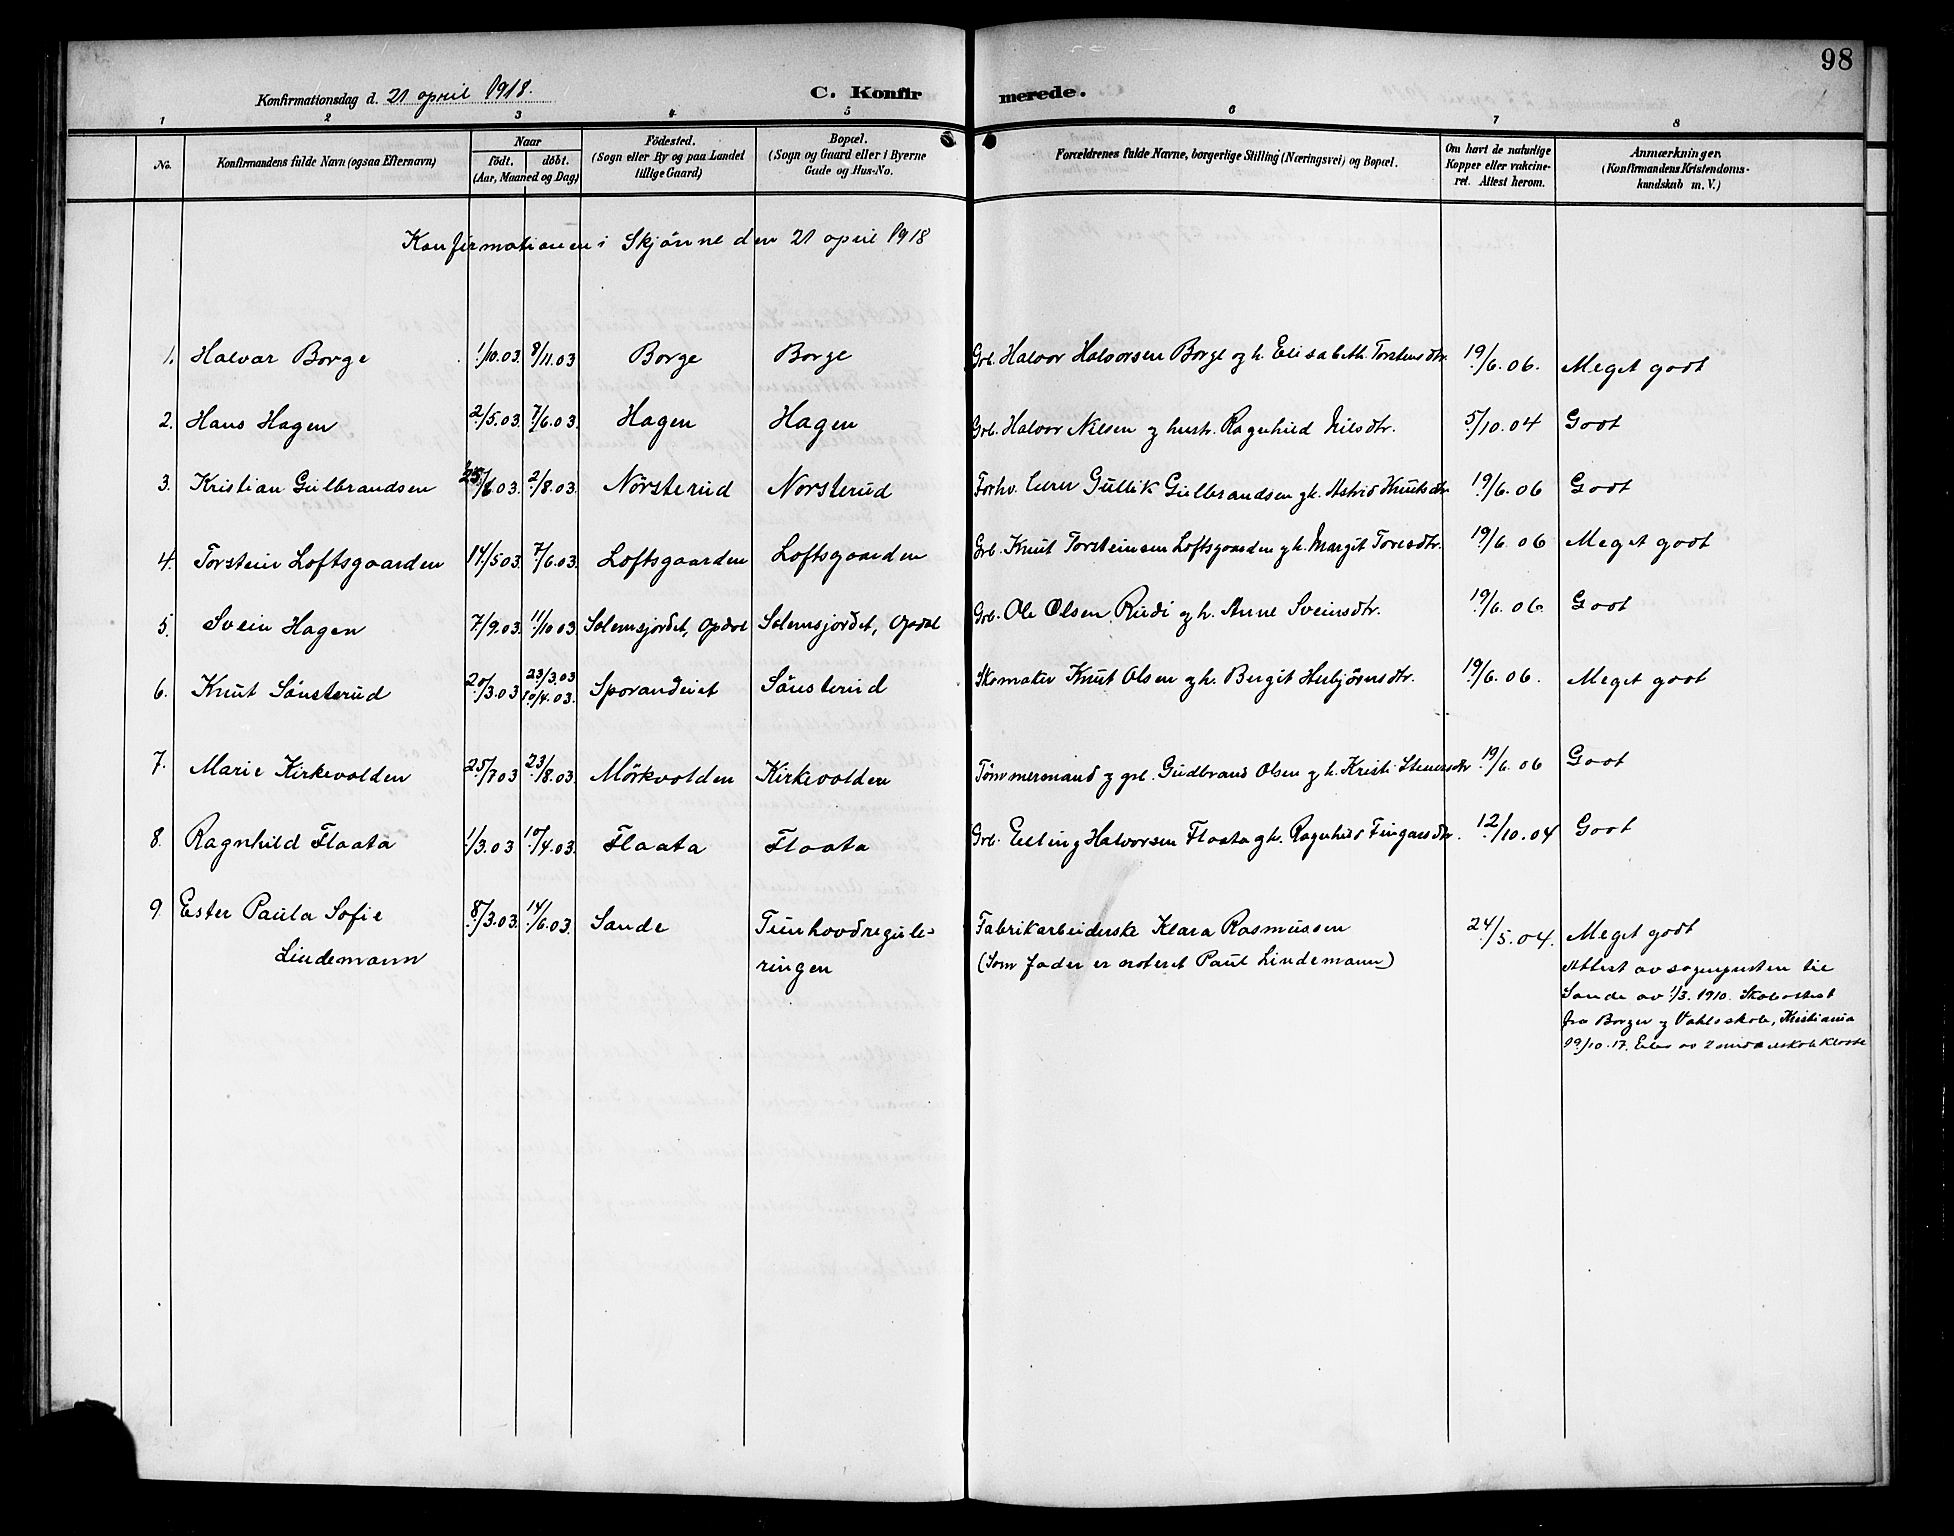 98
Konfirmationsdag d. 21 april 1918.
C. Konfirmerede.
1 2 3 4 5 6 7 8
No.
Konfirmandens fulde Navn (ogsaa Efternavn)
Naar
født. døbt.
(Aar, Maaned og Dag)
Fødested.
(Sogn eller By og paa Landet
tillige Gaard)
Bopæl.
(Sogn og Gaard eller i Byerne
Gade og Hus-No.
Forældrenes fulde Navne, borgerlige Stilling (Næringsvei) og Bopæl.
Om havt de naturlige
Kopper eller vakcine-
ret. Attest herom.
Anmærkninger.
(Konfirmandens Kristendoms-
kundskab m. V.)
Konfirmationen i Skjønne den 21 april 1918
1. Halvar Borge 1/10.03. 8/11.03 Borge Borge Grb. Halvor Halvorsen Borge og h. Elisabeth Torstensdtr. 19/6.06. Meget godt
2. Hans Hagen 2/5.03. 7/6.03. Hagen Hagen Grb. Halvor Nilsen og hustr. Ragnhild Nilsdtr. 5/10.04 Godt
3. Kristian Gulbrandsen 25/6 03. 2/8.03. Nørsterud Nørsterud Forhv. lærer Gullik Gulbrandsen og h. Astrid Knutsdtr 19/6.06 Godt
4. Torstein Loftsgaarden 14/5 03. 7/6.03. Loftsgaarden Loftsgaarden Grb. Knut Torsteinsen Loftsgaarden og h. Margit Toresdtr. 19/6.06 Meget godt
5. Svein Hagen 7/9.03. 11/10 03. Solemsjordet, Opdal Solemsjordet, Opdal Grb. Ole Olsen Rudi og h. Anne Sveinsdtr. 19/6.06. Godt
6. Knut Sønsterud 20/3.03 23/3.03 10/4.03. Sporandeiet Sønsterud Skomaker Knut Olsen og h. Bergit Herbjørnsdtr. 19/6.06. Meget godt
7. Marie Kirkevolden 25/7 03 23/8.03. Mørkvolden Kirkevolden Tømmermand og grb. Gudbrand Olsen og h. Kristi Steinersdtr 19/6.06 Godt
8. Ragnhild Flaata 1/3.03 10/4.03. Flaata Flaata Grb. Elling Halvorsen Flaata og h. Ragnhild Fingarsdtr. 12/10.04 Godt
9. Ester Paula Sofie 8/3.03. 14/6.03. Sande Tunhovdregule- Fabrikarbeiderske Klara Rasmussen 24/5.04. Meget godt
Lindemann ringen (Som fader er anteret Paul Lindemann)
Attest av sognepresten til
Sande av 1/3.1910. Skoleattest
fra Borger og Vahls skole, Kristiania
19/10.17. Elev av 2 middelskoleklasse